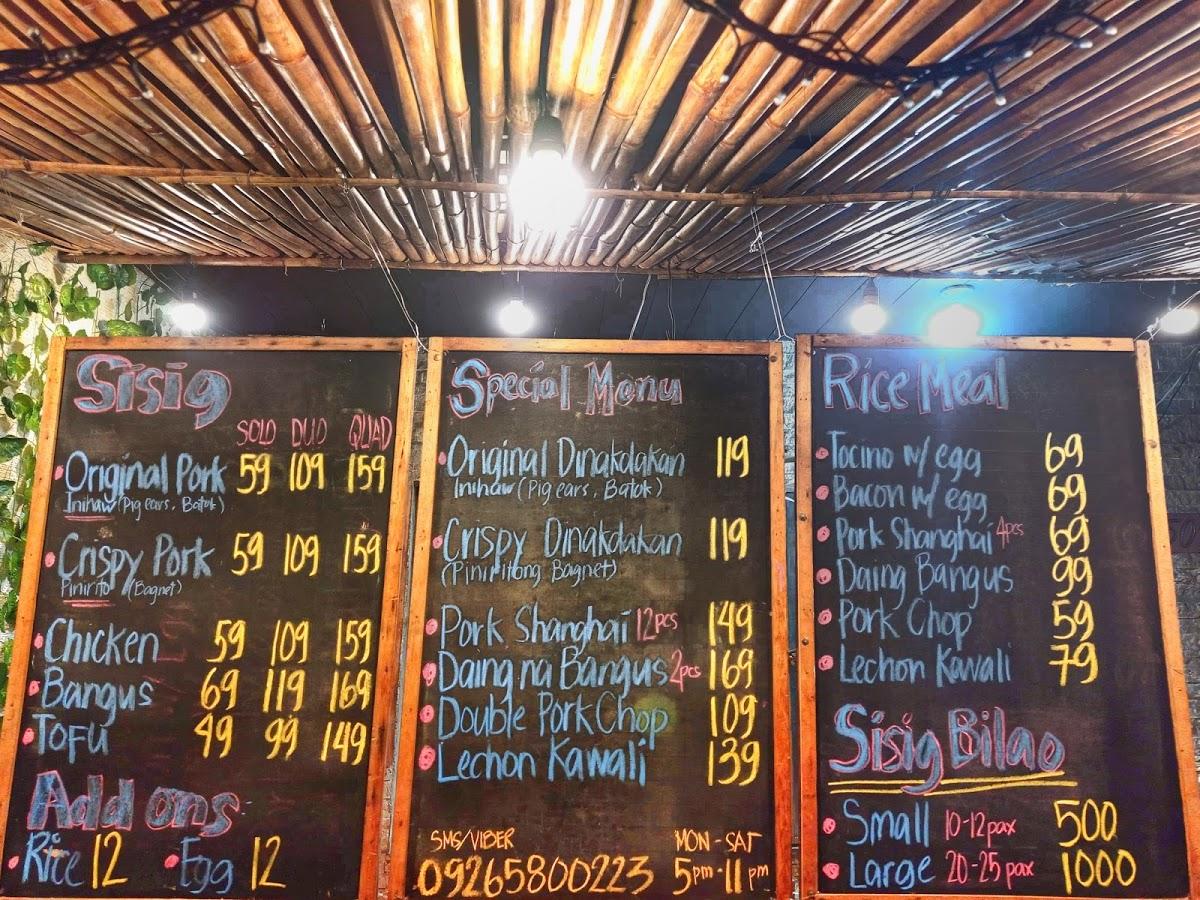 Sisig
SOLO DUO QUAD
Original Pork 59 109 159
Inihaw (Pig ears, Batok)
Crispy Pork 59 109 159
Pinirito (Bagnet)
Chicken 59 109 159
Bangus 69 119 169
TOFU 49 99 149
Add ons
Rice 12 Egg 12
Special Menu
Original Dinakdakan 119
Inihaw (Pig ears, Batok)
Crispy Dinakdakan 119
(Piniritong Bagnet)
Pork Shanghai 12pcs 149
Daing na Bangus 2pcs 169
Double Pork Chop 109
Lechon Kawali 139
SMS/VIBER MON-SAT
09265800223 5pm-11pm
Rice Meal
Tocino w/ egg 69
Bacon w/ egg 69
Pork Shanghai 4pcs 69
Daing Bangus 99
Pork Chop 59
Lechon Kawali 79
Sisig Bilao
Small 10-12pax 500
Large 20-25 pax 1000